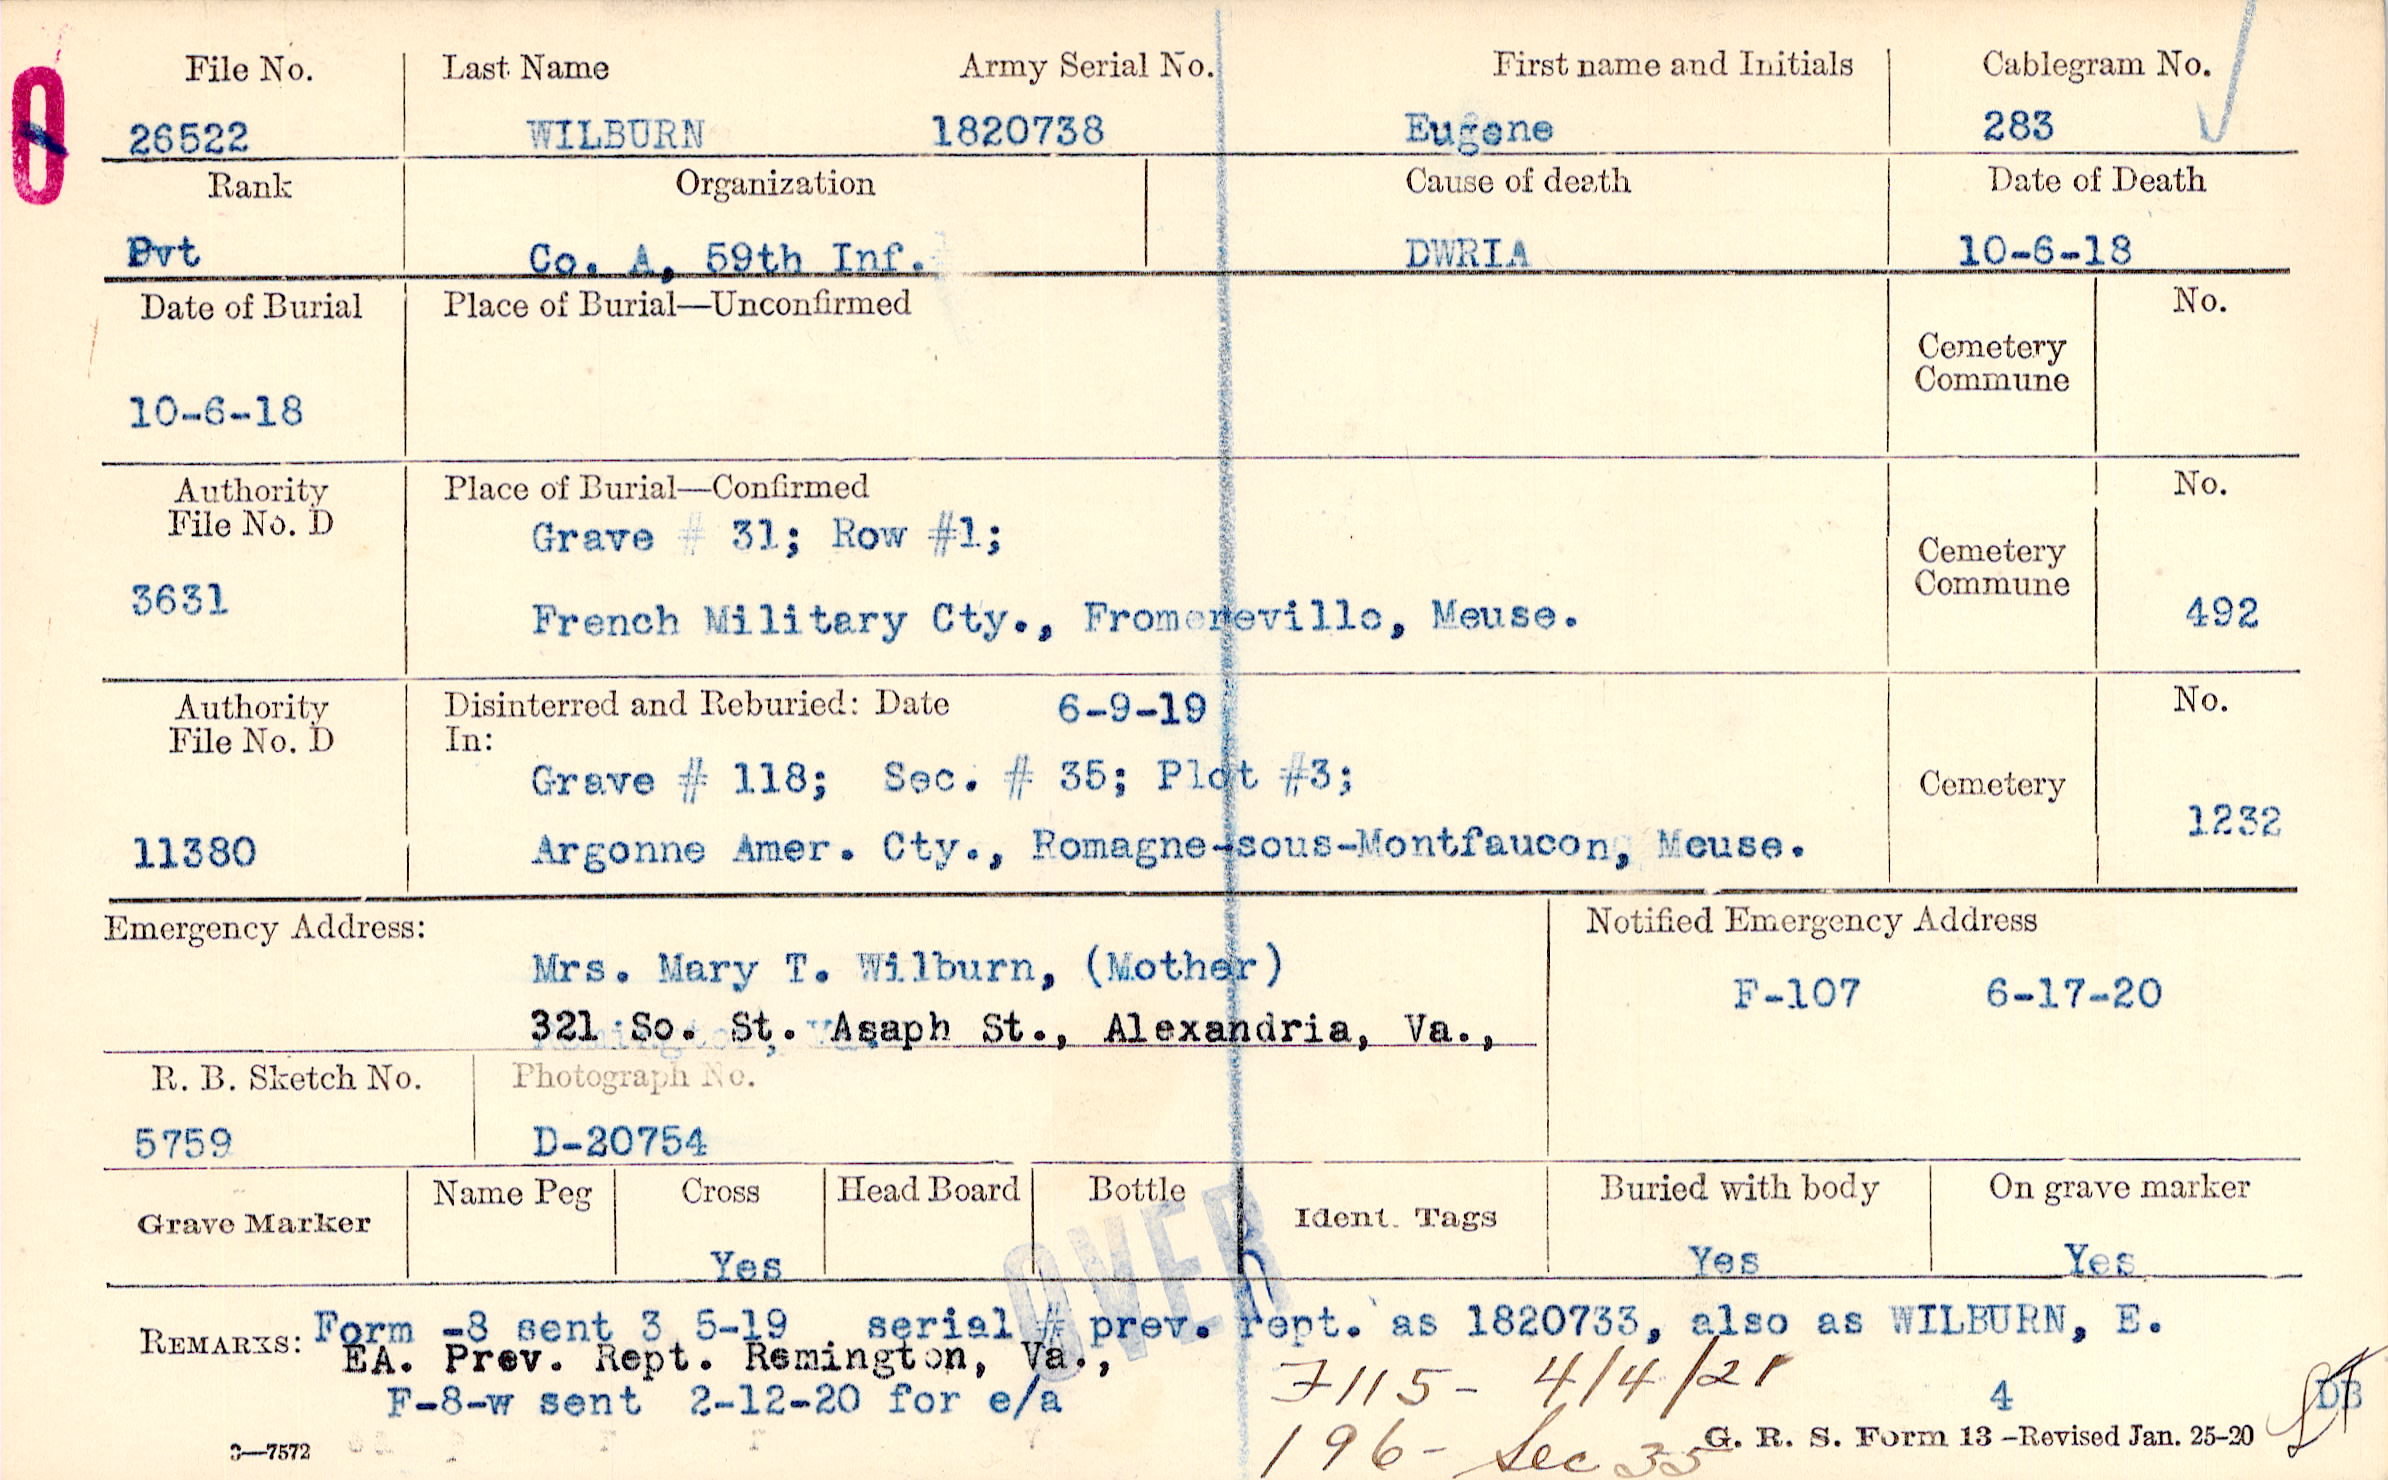 File No. Last Name Army Serial No. First name and Initials Cablegram No.
26522 WILBURN 1820738 Eugene 283
Rank Organization Cause of death Date of Death
Pvt Co. A, 59th Inf. DWRIA 10-6-18
Date of Burial Place of Burial—Unconfirmed No.
Cemetery
Commune
10-6-18
Authority Place of Burial—Confirmed No.
File No. D
Grave # 31; Row #1;
Cemetery
Commune
3631
French Military Cty., Fromereville, Meuse. 492
Authority Disinterred and Reburied: Date 6-9-19 No.
File No. D In:
Grave # 118; Sec. # 35; Plot #3; Cemetery
11380 Argonne Amer. Cty., Romagne-sous-Montfaucon, Meuse. 1232
Emergency Address: Notified Emergency Address
Mrs. Mary T. Wilburn, (Mother)
F-107 6-17-20
321 So. St. Asaph St., Alexandria, Va.,
R. B. Sketch No. Photograph No.
5759 D-20754
Grave Marker Name Peg Cross Head Board Bottle Ident. Tags Buried with body On grave marker
Yes Yes Yes
OVER
REMARKS: Form -8 sent 3 5-19 serial # prev. rept. as 1820733, also as WILBURN, E.
EA. Prev. Rept. Remington, Va.,
F-8-w sent 2-12-20 for e/a
F115- 4/4/21
4 DB
196- Sec 35
3—7572 G. R. S. Form 13 -Revised Jan. 25-20